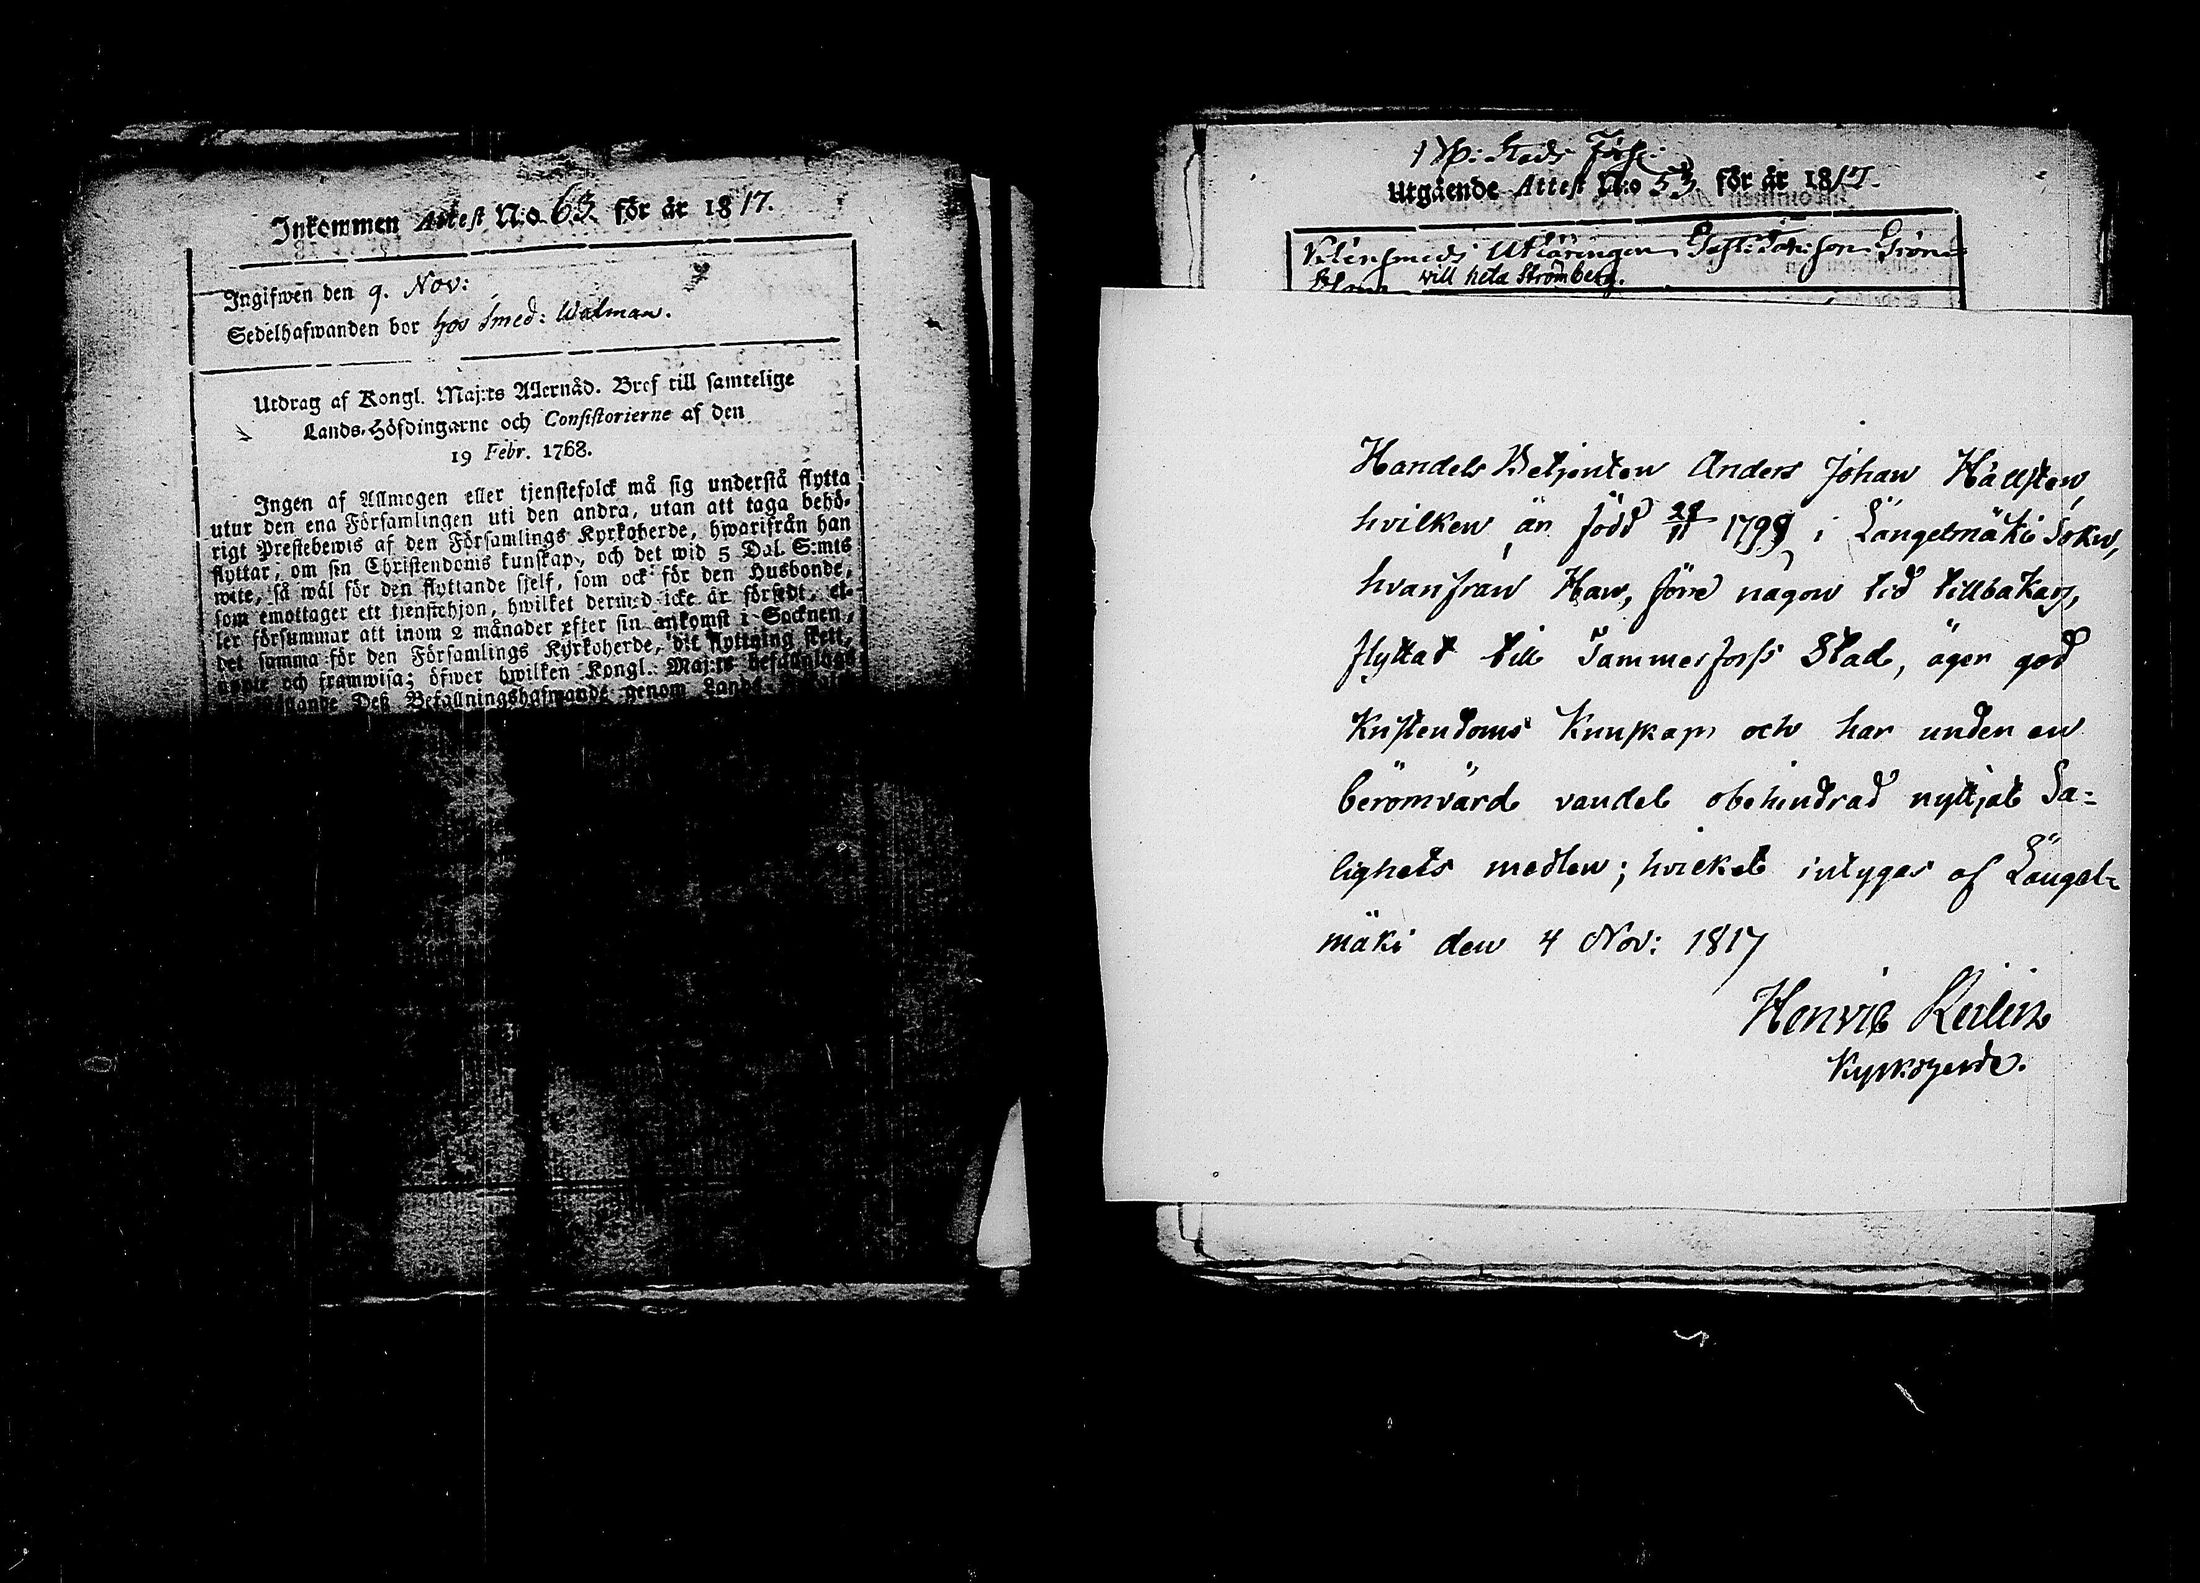 Inkommen Attest N:o 63. för år 1817.
Ingifwen den 9. Nov:
Sedelhafwanden bor hos Smed: Walman.
Utdrag af Kongl. Maj:ts Allernåd. Bref till samtelige
Lands-Höfdingarne och Consistorierne af den
19 Febr. 1768.
Ingen af Allmogen eller tjenstefolck må sig understå flytta
utur den ena Församlingen uti den andra, utan att taga behö-
rigt Prestebewis af den Församlings Kyrkoherde, hwarifrån han
flyttar, om sin Christendoms kunskap, och det wid 5 Dal. S:mts
wite, så wäl för den flyttande sjelf, som ock för den Husbonde,
som emottager ett tjenstehjon, hwilket dermed icke är försedt, el-
ler försummar att inom 2 månader efter sin ankomst i Socknen,
det samma för den Församlings Kyrkoherde, dit flyttning skett,
och framwisa; öfwer hwilken Kongl. Maj:ts
Deß Befallningshafwande genom
Utgående Attest N:o 53. för år 1817.
will heta Strömberg.
Handels Betjenten Anders Johan Hällsten,
hvilken är född 28/11 1799 i Längelmäki Sokn,
hvarifrån Han, förre någon tid tillbakars,
flyttat till Tammerforss Stad, äger god
Kristendoms Kunskap och har under en
berömvärd vandel obehindrad nyttjat Sa-
lighets medlen; hvilket intygas af Längel-
mäki den 4 Nov: 1817
Henric
Kyrkoherde.